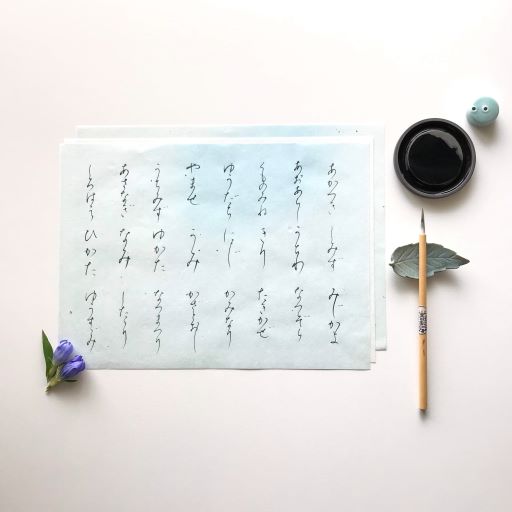 あかつき しみず みじかよ
あおあらし うちわ なつぞら
くものみね きり たきかぜ
ゆうだち にじ かみなり
やませ うみ
うちみず ゆかた なつまつり
あさなぎ なみ したたり
しろはえ ひかた ゆうすずみ